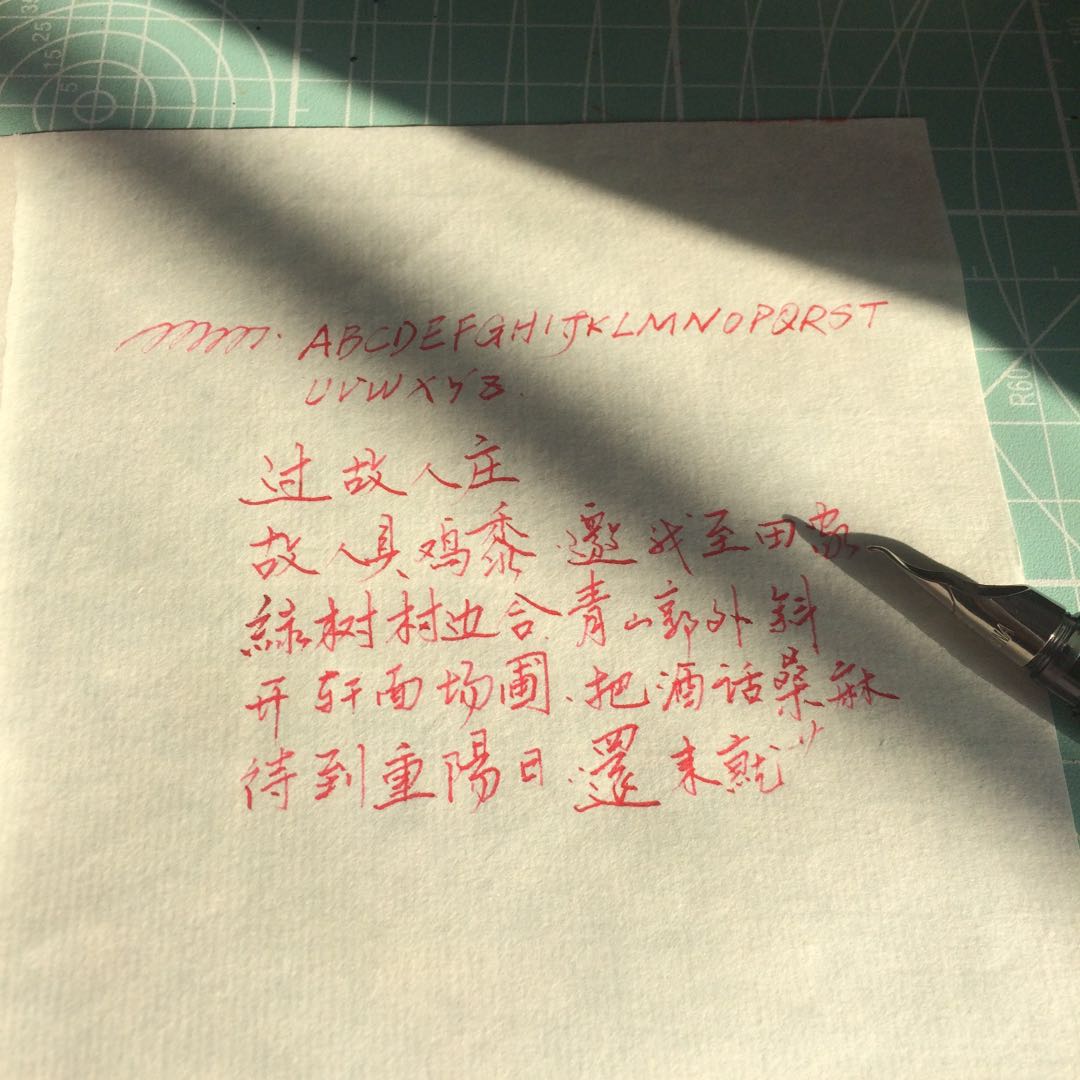 ABCDEFGHIJKLMNOPQRST
UVWXYZ
过故人庄
故人具鸡黍.邀我至田家
綠树村边合.青山郭外斜
开轩面场圃.把酒话桑麻
待到重陽日.還来就
R60
5 15 25 35